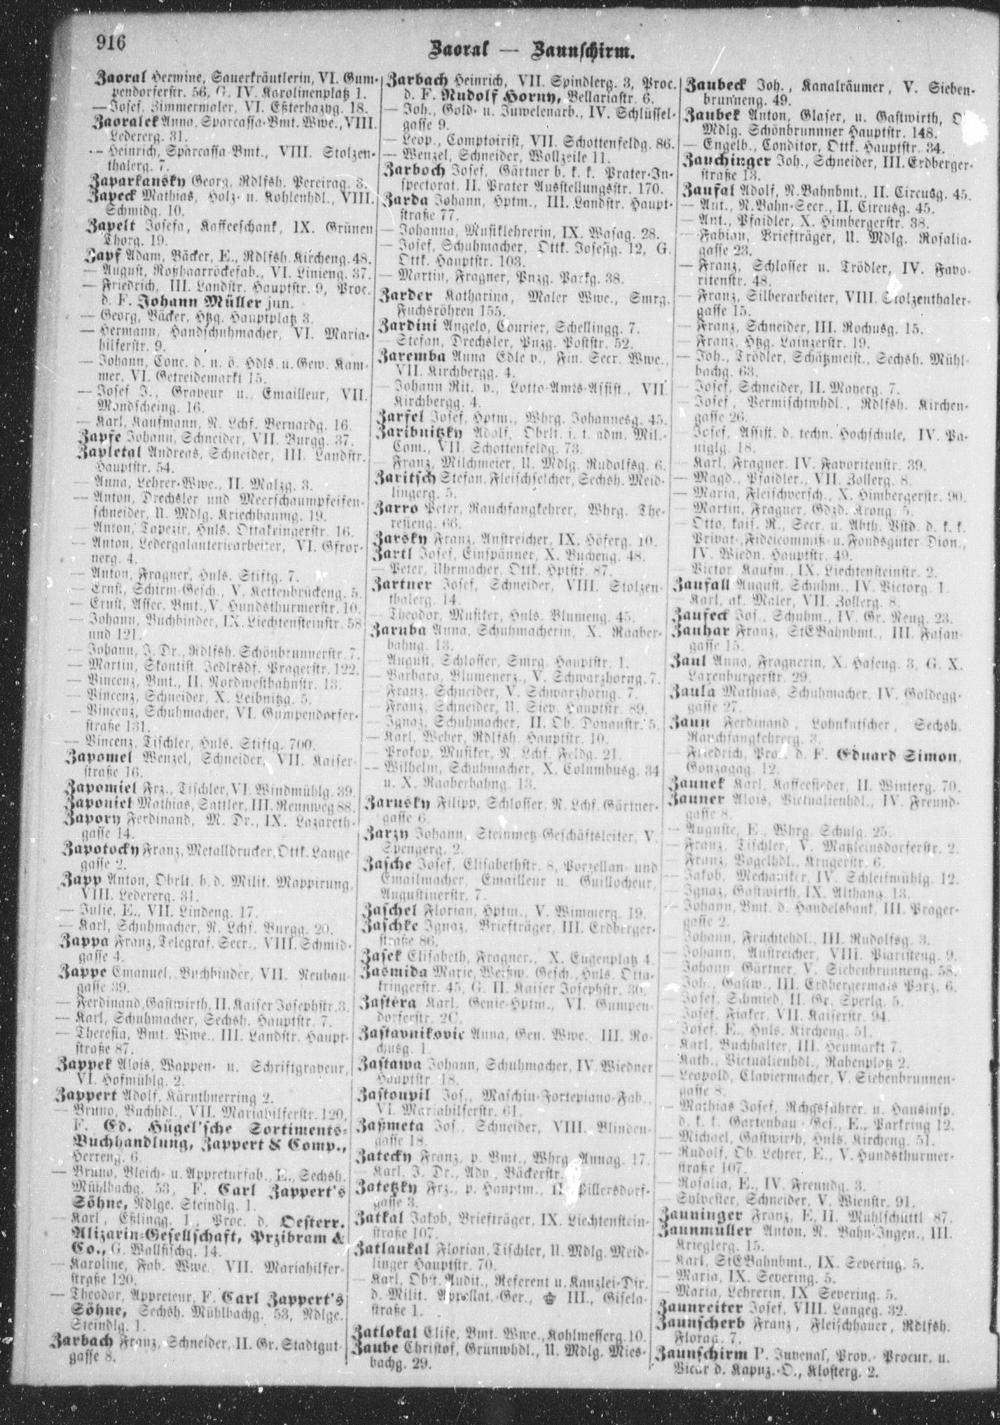 916
Zaoral — Zaunschirm.
Zaoral Hermine, Sauerkräutlerin, VI. Gum-
pendorferstr. 56, G. IV. Karolinenplatz 1.
— Josef, Zimmermaler, VI. Eßterhazyg. 18.
Zaoralek Anna, Sparcassa-Bmt. Wwe., VIII.
Ledererg. 31.
— Heinrich, Sparcassa-Bmt., VIII. Stolzen-
thalerg. 7.
Zaparkansky Georg, Rdlfsh. Pereirag. 3.
Zapeck Mathias, Holz- u. Kohlenhdl., VIII.
Schmidg. 10.
Zapelt Josefa, Kaffeeschank, IX. Grünen
Thorg. 19.
Zapf Adam, Bäcker, E., Rdlfsh. Kircheng. 48.
— August, Roßhaarröckefab., VI. Linieng. 37.
— Friedrich, III. Landstr. Hauptstr. 9, Proc.
d. F. Johann Müller jun.
— Georg, Bäcker, Htzg. Hauptplatz 3.
— Hermann, Handschuhmacher, VI. Maria-
hilferstr. 9.
— Johann, Conc. d. n. ö. Hdls. u. Gew. Kam-
mer, VI. Getreidemarkt 15.
— Josef J., Graveur u. Emailleur, VII.
Mondscheing. 16.
— Karl, Kaufmann, N. Lchf. Bernardg. 16.
Zapfe Johann, Schneider, VII. Burgg. 37.
Zapletal Andreas, Schneider, III. Landstr.
Hauptstr. 54.
— Anna, Lehrer-Wwe., II. Malzg. 3.
— Anton, Drechsler und Meerschaumpfeifen-
schneider, U. Mdlg. Kriechbaumg. 19.
— Anton, Tapezir, Huls. Ottakringerstr. 16.
— Anton, Ledergalanteriearbeiter, VI. Gfror-
nerg. 4.
— Anton, Fragner, Huls. Stiftg. 7.
— Ernst, Schirm-Gesch., V. Kettenbrückeng. 5.
— Ernst, Assec. Bmt., V. Hundsthurmerstr. 10.
— Johann, Buchbinder, IX. Liechtensteinstr. 58
und 121.
— Johann, J. Dr., Rdlfsh. Schönbrunnerstr. 7.
— Martin, Skontist, Jedlrsdf. Pragerstr. 122.
— Vincenz, Bmt., II. Nordwestbahnstr. 13.
— Vincenz, Schneider, X. Leibnitzg. 5.
— Vincenz, Schuhmacher, VI. Gumpendorfer-
straße 131.
— Vincenz, Tischler, Huls. Stiftg. 700.
Zapomel Wenzel, Schneider, VII. Kaiser-
straße 16.
Zapomiel Frz., Tischler, VI. Windmühlg. 39.
Zaponiet Mathias, Sattler, III. Rennweg 88.
Zapory Ferdinand, M. Dr., IX. Lazareth-
gasse 14.
Zapotocky Franz, Metalldrucker, Ottk. Lange
gasse 2.
Zapp Anton, Obrlt. b. d. Milit. Mappirung,
VIII. Ledererg. 31.
— Julie, E., VII. Lindeng. 17.
— Karl, Schuhmacher, N. Lchf. Burgg. 20.
Zappa Franz, Telegraf. Secr., VIII. Schmid-
gasse 4.
Zappe Emanuel, Buchbinder, VII. Neubau-
gasse 39.
— Ferdinand, Gastwirth, II. Kaiser Josephstr. 3.
— Karl, Schuhmacher, Sechsh. Hauptstr. 7.
— Theresia, Bmt. Wwe., III. Landstr. Haupt-
straße 87.
Zappek Alois, Wappen- u. Schriftgraveur,
VI. Hofmühlg. 2.
Zappert Adolf, Kärnthnerring 2.
— Bruno, Buchhdl., VII. Mariahilferstr. 120,
F. Ed. Hügel'sche Sortiments-
Buchhandlung, Zappert & Comp.,
Herreng. 6.
— Bruno, Bleich- u. Appreturfab., E., Sechsh.
Mühlbachg. 53, F. Carl Zappert's
Söhne, Ndlge. Steindlg. 1.
— Karl, Eßlingg. 1, Proc. d. Oesterr.
Alizarin-Gesellschaft, Przibram &
Co., G. Wallfischg. 14.
— Karoline, Fab. Wwe., VII. Mariahilfer-
straße 120.
— Theodor, Appreteur, F. Carl Zappert's
Söhne, Sechsh. Mühlbachg. 53, Ndlge.
Steindlg. 1.
Zarbach Franz, Schneider, II. Gr. Stadtgut-
gasse 8.
Zarbach Heinrich, VII. Spindlerg. 3, Proc.
d. F. Rudolf Horny, Bellariastr. 6.
— Joh., Gold- u. Juwelenarb., IV. Schlüssel-
gasse 9.
— Leop., Comptoirist, VII. Schottenfeldg. 86.
— Wenzel, Schneider, Wollzeile 11.
Zarboch Josef, Gärtner b. k. k. Prater-In-
spectorat, II. Prater Ausstellungsstr. 170.
Zarda Johann, Hptm., III. Landstr. Haupt-
straße 77.
— Johanna, Musiklehrerin, IX. Wasag. 28.
— Josef, Schuhmacher, Ottk. Josefig. 12, G.
Ottk. Hauptstr. 103.
— Martin, Fragner, Pnzg. Parkg. 38.
Zarder Katharina, Maler Wwe., Smrg.
Fuchsröhren 155.
Zardini Angelo, Courier, Schellingg. 7.
— Stefan, Drechsler, Pnzg. Poststr. 52.
Zaremba Anna Edle v., Fin. Secr. Wwe.,
VII. Kirchbergg. 4.
— Johann Rit. v., Lotto-Amts-Assist., VII.
Kirchbergg. 4.
Zarfel Josef, Hptm., Whrg. Johannesg. 45.
Zaribnitzky Adolf, Obrlt. i. t. adm. Mil.-
Com., VII. Schottenfeldg. 73.
— Franz, Milchmeier, U. Mdlg. Rudolfsg. 6.
Zaritsch Stefan, Fleischselcher, Sechsh. Meid-
lingerg. 5.
Zarro Peter, Rauchfangkehrer, Whrg. The-
resieng. 66.
Zarsky Franz, Anstreicher, IX. Höferg. 10.
Zartl Josef, Einspänner, X. Bucheng. 48.
— Peter, Uhrmacher, Ottk. Hptstr. 87.
Zartner Josef, Schneider, VIII. Stolzen-
thalerg. 14.
— Theodor, Musiker, Huls. Blumeng. 45.
Zaruba Anna, Schuhmacherin, X. Raaber-
bahng. 13.
— August, Schlosser, Smrg. Hauptstr. 1.
— Barbara, Blumenerz., V. Schwarzhorng. 7.
— Franz, Schneider, V. Schwarzhorng. 7.
— Franz, Schneider, U. Siev. Hauptstr. 89.
— Ignaz, Schuhmacher, II. Ob. Donaustr. 5.
— Karl, Weber, Rdlfsh. Hauptstr. 10.
— Prokop, Musiker, N. Lchf. Feldg. 21.
— Wilhelm, Schuhmacher, X. Columbusg. 34
u. X. Raaberbahng. 13.
Zarusky Filipp, Schlosser, N. Lchf. Gärtner-
gasse 6.
Zarzy Johann, Steinmetz Geschäftsleiter, V.
Spengerg. 2.
Zasche Josef, Elisabethstr. 8, Porzellan- und
Emailmacher, Emailleur u. Guillocheur,
Augustinerstr. 7.
Zaschel Florian, Hptm., V. Wimmerg. 19.
Zaschke Ignaz, Briefträger, III. Erdberger-
straße 86.
Zasek Elisabeth, Fragner., X. Eugenplatz 4.
Zasmida Marie, Weißw. Gesch., Huls. Otta-
kringerstr. 45, G. II. Kaiser Josephstr. 36.
Zastéra Karl, Genie-Hptm., VI. Gumpen-
dorferstr. 2C.
Zastavnikovic Anna, Gen. Wwe., III. Ro-
chusg. 1.
Zastawa Johann, Schuhmacher, IV. Wiedner
Hauptstr. 18.
Zastoupil Jos., Maschin-Fortepiano-Fab.,
VI. Mariahilferstr. 61.
Zaßmeta Jos., Schneider, VIII. Blinden-
gasse 18.
Zatecky Franz, p. Bmt., Whrg. Annag. 17.
— Karl, J. Dr., Adv., Bäckerstr.
Zatetzky Frz., p. Hauptm., Billersdorf-
gasse 3.
Zatkal Jakob, Briefträger, IX. Liechtenstein-
straße 107.
Zatlaukal Florian, Tischler, U. Mdlg. Meid-
linger Hauptstr. 70.
— Karl, Obst. Audit., Referent u. Kanzlei-Dir.
d. Milit. Appellat.-Ger., III., Gisela-
straße 1.
Zatlokal Elise, Bmt. Wwe., Kohlmesserg. 10.
Zaube Christof, Grünwhdl., U. Mdlg. Mies-
bachg. 29.
Zaubeck Joh., Kanalräumer, V. Sieben-
brunneng. 49.
Zaubek Anton, Glaser, u. Gastwirth,
Mdlg. Schönbrunnner Hauptstr. 148.
— Engelb., Conditor, Ottk. Hauptstr. 34.
Zauchinger Joh., Schneider, III. Erdberger-
straße 13.
Zaufal Adolf, N. Bahnbmt., II. Circusg. 45.
— Ant., N. Bahn-Secr., II. Circusg. 45.
— Ant., Pfaidler, X. Himbergerstr. 38.
— Fabian, Briefträger, U. Mdlg. Rosalia-
gasse 23.
— Franz, Schlosser u. Trödler, IV. Favo-
ritenstr. 48.
— Franz, Silberarbeiter, VIII. Stolzenthaler-
gasse 15.
— Franz, Schneider, III. Rochusg. 15.
— Franz, Htzg. Lainzerstr. 19.
— Joh., Trödler, Schätzmeist., Sechsh. Mühl-
bachg. 63.
— Josef, Schneider, II. Mayerg. 7.
— Josef, Vermischtwhdl., Rdlfsh. Kirchen-
gasse 26.
— Josef, Assist. d. techn. Hochschule, IV. Pa-
niglg. 18.
— Karl, Fragner, IV. Favoritenstr. 39.
— Magd., Pfaidler., VII. Zollerg. 8.
— Maria, Fleischversch., X. Himbergerstr. 90.
— Martin, Fragner, Gdzd. Krong. 5.
— Otto, kais. R., Secr. u. Abth. Vstd. d. k. k.
Privat-Fideicommiß- u. Fondsgüter Dion.,
IV. Wiedn. Hauptstr. 49.
— Victor, Kaufm., IX. Liechtensteinstr. 2.
Zaufall August, Schuhm., IV. Victorg. 1.
— Karl, ak. Maler, VII. Zollerg. 8.
Zaufeck Jos., Schuhm., IV. Gr. Neug. 23.
Zauhar Franz, StEBahnbmt., III. Fasan-
gasse 15.
Zaul Anna, Fragnerin, X. Haseng. 3, G. X.
Laxenburgerstr. 29.
Zaula Mathias, Schuhmacher, IV. Goldegg-
gasse 27.
Zaun Ferdinand, Lohnkutscher, Sechsh.
Rauchfangkehrerg. 3.
— Friedrich, Proc. d. F. Eduard Simon,
Gonzagag. 12.
Zaunek Karl, Kaffeesieder, II. Winterg. 70.
Zauner Alois, Victualienhdl., IV. Freund-
gasse 8.
— Auguste, E., Whrg. Schulg. 25.
— Franz, Tischler, V. Matzleinsdorferstr. 2.
— Franz, Vogelhdl., Krugerstr. 6.
— Jakob, Mechaniker, IV. Schleifmühlg. 12.
— Ignaz, Gastwirth, IX. Althang. 13.
— Johann, Bmt. d. Handelsbank, III. Prager-
gasse 2.
— Johann, Fruchtehdl., III. Rudolfsg. 3.
— Johann, Anstreicher, VIII. Piaristeng. 9.
— Johann, Gärtner, V. Siebenbrunneng. 58.
— Joh., Gastw., III. Erdbergermais Parz. 6.
— Josef, Schmied, II. Gr. Sperlg. 5.
— Josef, Fiaker, VII. Kaiserstr. 94.
— Josef, E., Huls. Kircheng. 51.
— Karl, Buchhalter, III. Heumarkt 7.
— Kath., Victualienhdl., Rabenplatz 2.
— Leopold, Claviermacher, V. Siebenbrunnen-
gasse 8.
— Mathias Josef, Rchgsführer. u. Hausinsp.
d. k. k. Gartenbau-Ges., E., Parkring 12.
— Michael, Gastwirth, Huls. Kircheng. 51.
— Rudolf, Ob. Lehrer, E., V. Hundsthurmer-
straße 107.
— Rosalia, E., IV. Freundg. 3.
— Sylvester, Schneider, V. Wienstr. 91.
Zauninger Franz, E, II. Mühlschüttl 87.
Zaunmüller Anton, N. Bahn-Ingen., III.
Krieglerg. 15.
— Karl, StEBahnbmt., IX. Severing. 5.
— Maria, IX. Severing. 5.
— Maria, Lehrerin, IX. Severing. 5.
Zaunreiter Josef, VIII. Langeg. 32.
Zaunscherb Franz, Fleischhauer, Rdlfsh.
Florag. 7.
Zaunschirm P. Juvenal, Prov.- Procur. u.
Vicar d. Kapuz.-O., Klosterg. 2.